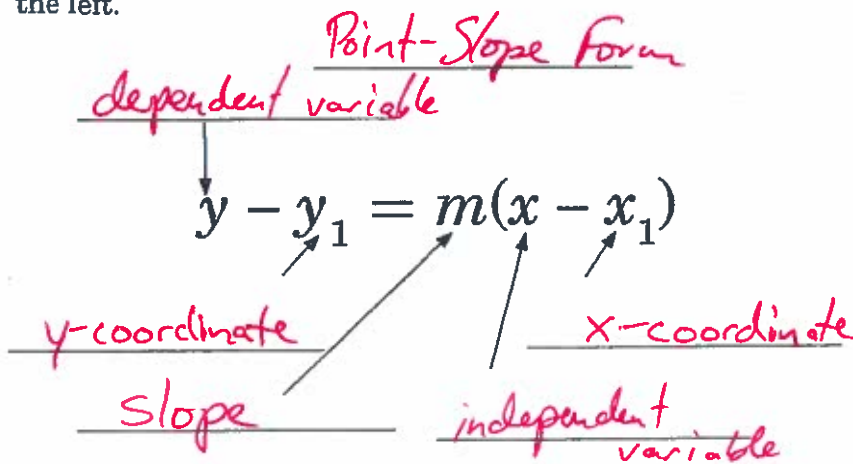 the left.
Point-Slope Form
dependent variable
y − y₁ = m(x − x₁)
y-coordinate
x-coordinate
slope
independent
variable